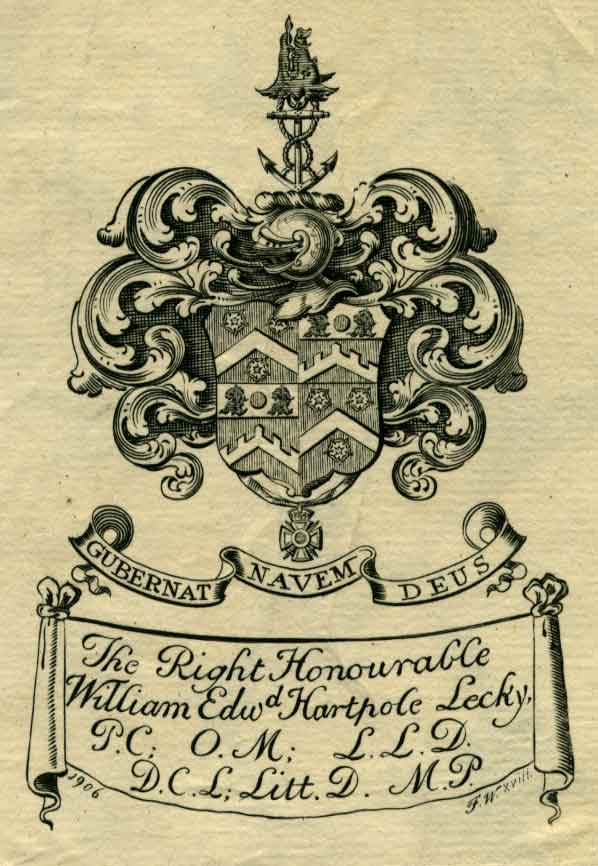 GUBERNAT NAVEM DEUS
The Right Honourable
William Edwd Hartpole Lecky,
P.C; O.M; L.L.D.
D.C.L; Litt.D. M.P.
1906
F.W. XVIII.